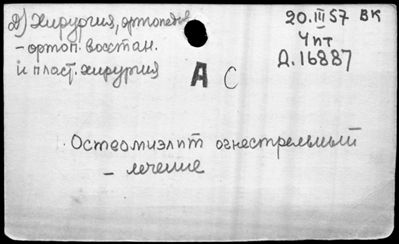 д) Хирургия, ортопедия
- ортоп. восстан.
и пласт. хирургия
20.III57 ВК
Чпт
Д.16887
А С
Остеомиэлит огнестрельный
- лечение